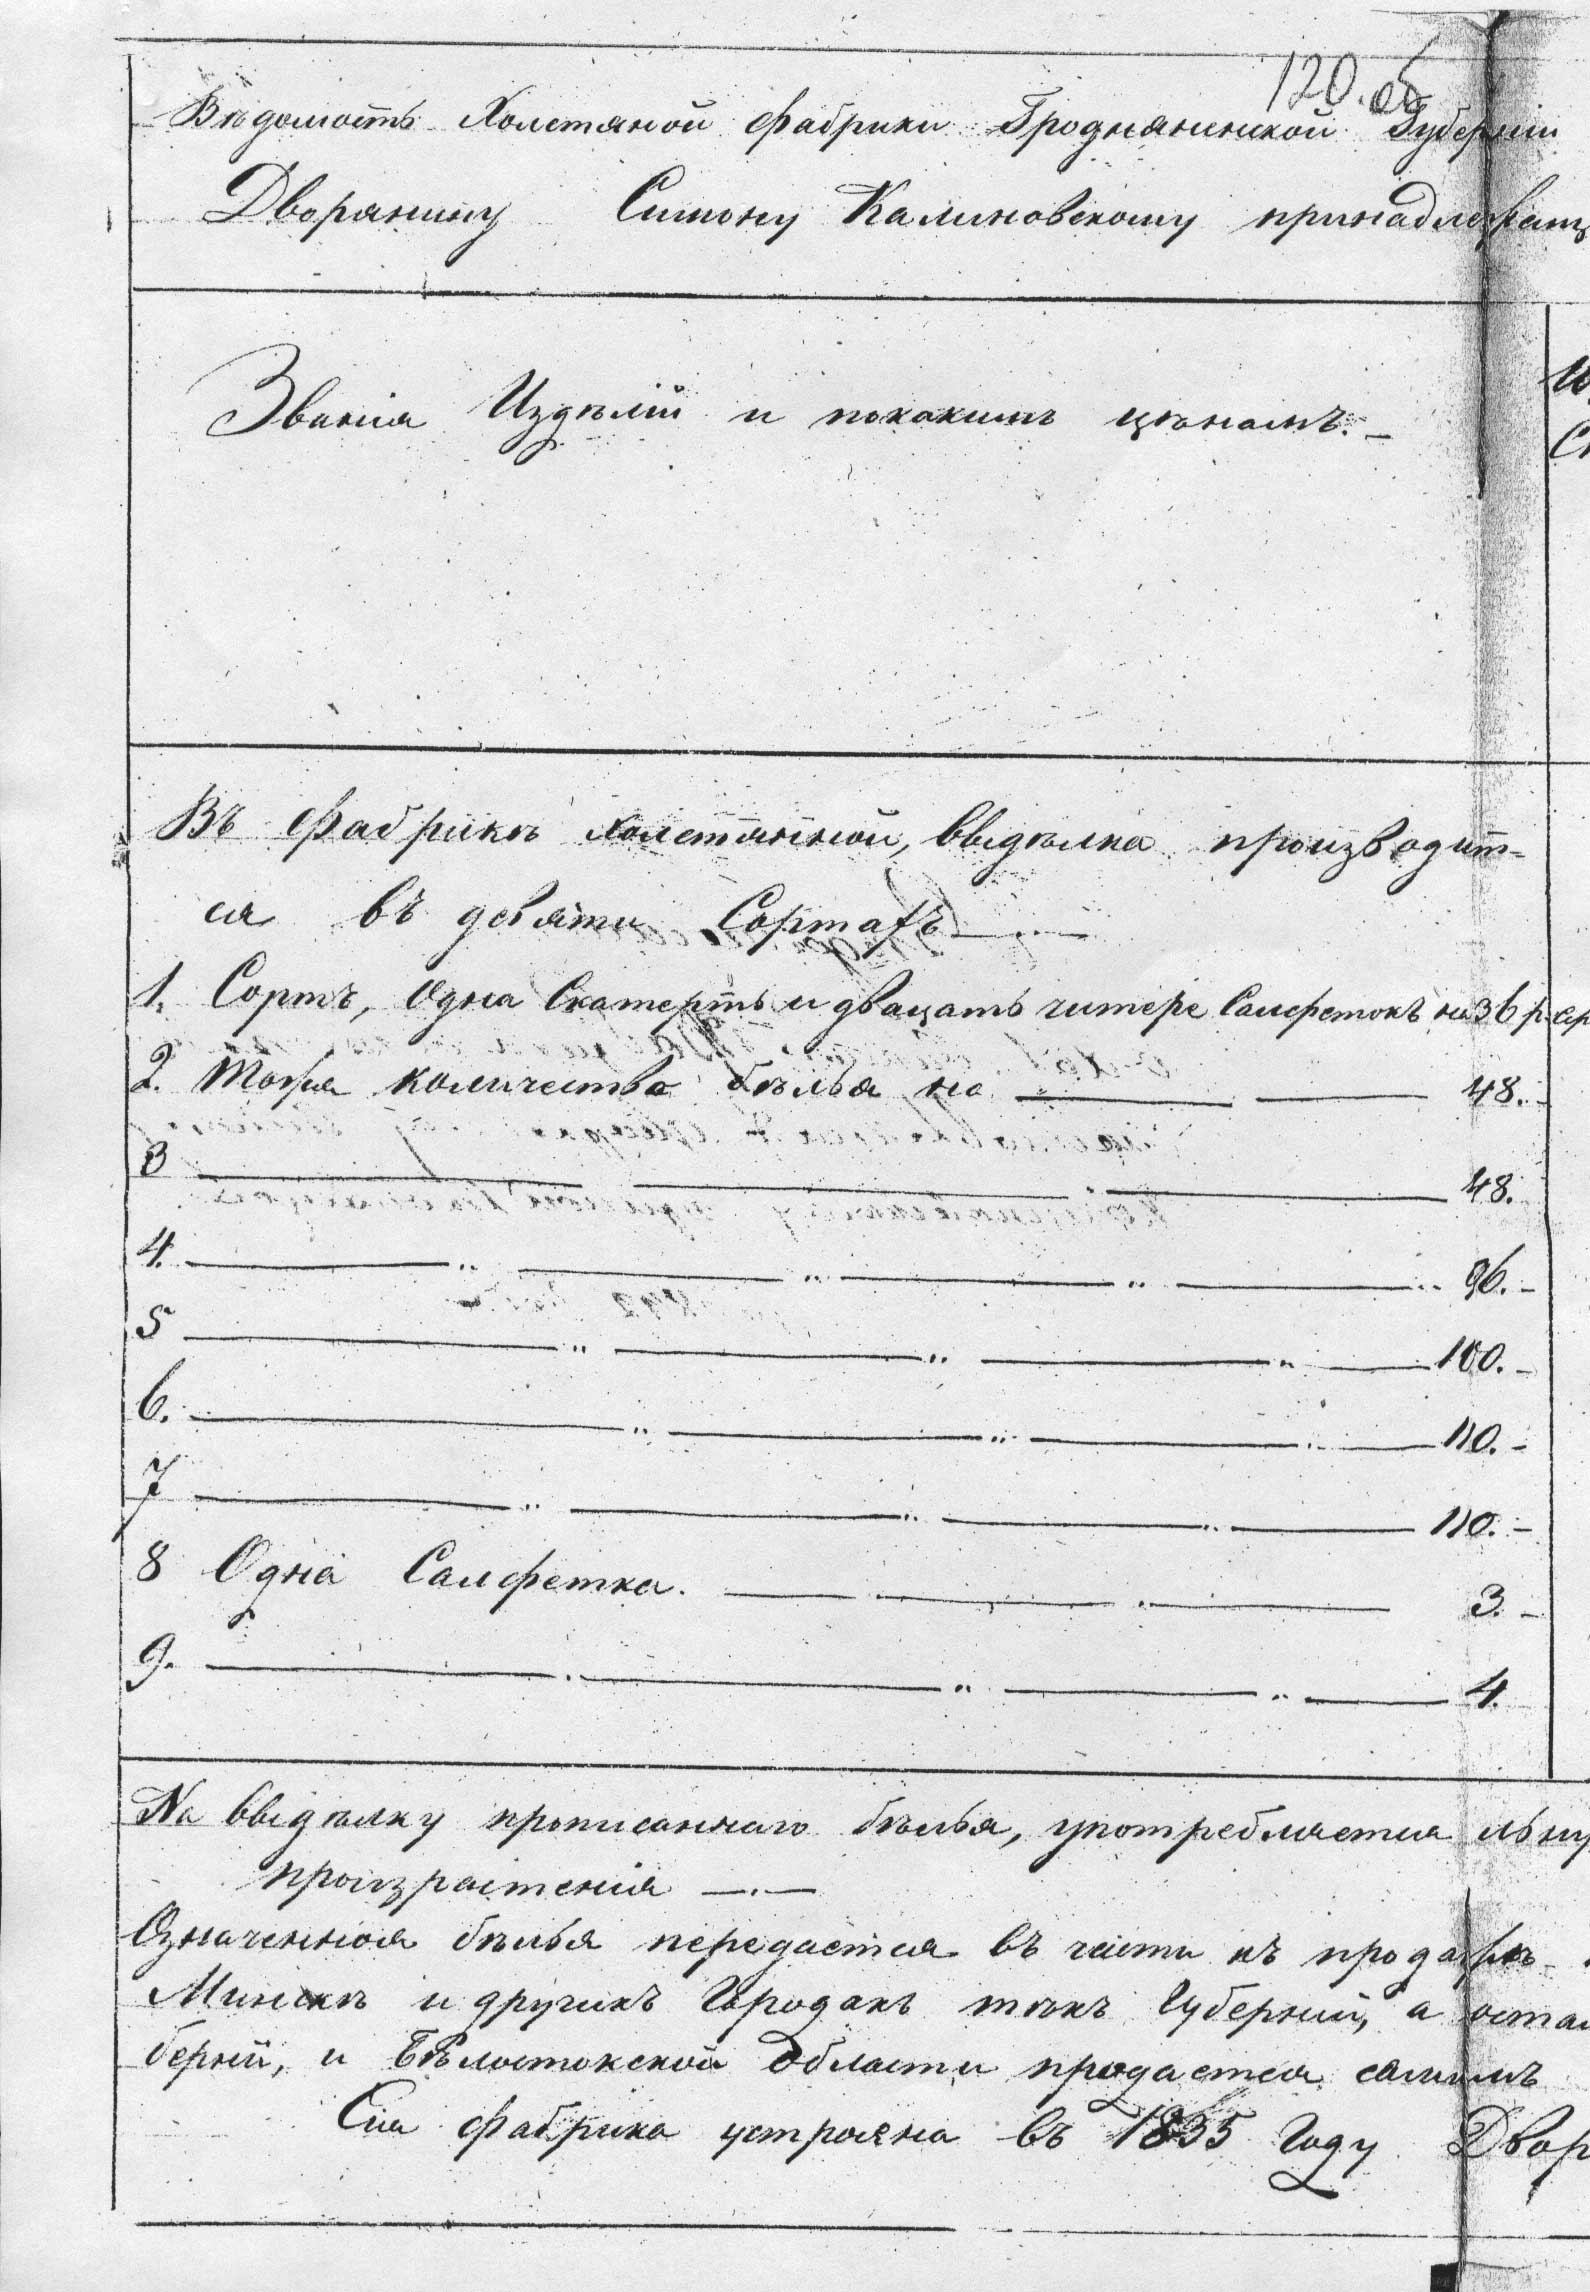 120.об
Вѣдомость Холстяной Фабрики Гроднянинской Губерніи
Дворянину Симону Калиновскому принадлежащ
Званія Издѣлій и покакимъ цѣнамъ. –
Въ Фабрикѣ Холстянной, выдѣлка производит-
ся въ девяти Сортахъ
1. Сортъ, Одна Скатерть и двацать читере Салфетокъ на 36 р. сер
2. Тожа количество бѣлья на 48. –
3 48.
4. 96. –
5 100. –
6. 110. –
7 110. –
8 Одна Салфетка. 3. –
9. 4.
На выдѣлку прописаннаго бѣлья, употребляется льну
произрастенія
Означенноя бѣлья передается въ части къ продажѣ
Минскѣ и другихъ Городахъ тѣхъ Губерній, а остал
берній, и Бѣлостокской Области продается самимъ
Сія Фабрика устрояна въ 1835 Году Двор